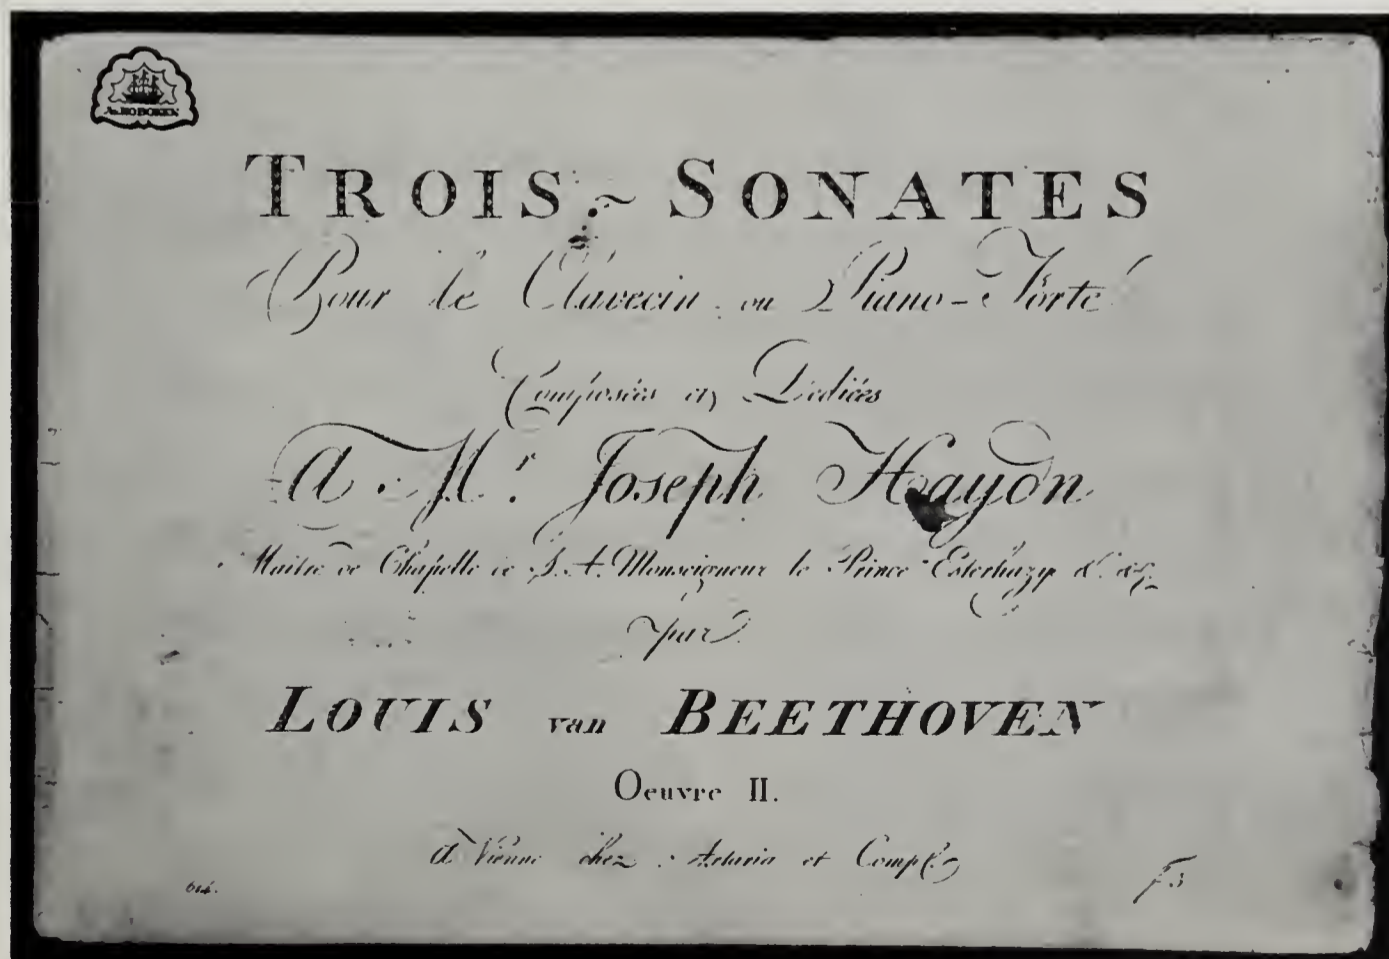 A. v. HOBOKEN
TROIS SONATES
Pour le Clavecin ou Piano-Forte
Composées et Dediées
A Mr. Joseph Haydn
Maitre de Chapelle de S. A. Monseigneur le Prince Esterhazy &. &.
par
LOUIS van BEETHOVEN
Oeuvre II.
a Vienne chez Artaria et Comp.
614.
f 3